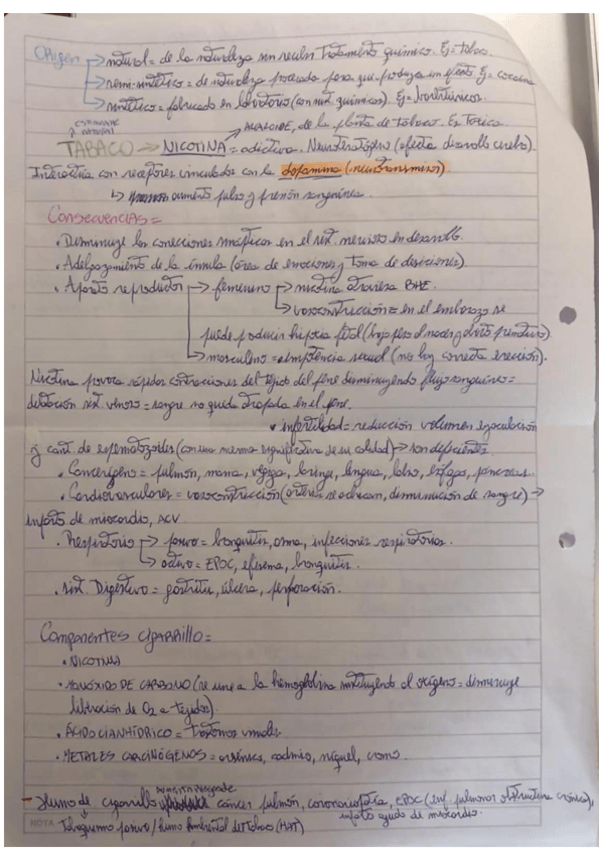 Origen → natural = de la naturaleza sin recibir tratamiento químico. Ej = tabaco.
→ semi-sintético = de naturaleza procesada para que produzca un efecto. Ej = cocaína
→ sintético = fabricado en laboratorio (con sust. químicos). Ej = barbitúricos.
ESTIMULANTE y NATURAL
→ ALCALOIDE, de la planta de tabaco. Es tóxica.
TABACO → NICOTINA = adictiva. Neuroteratógeno (afecta desarrollo cerebro).
Interactúa con receptores vinculados con la dopamina (neurotransmisor).
↳ aumenta pulso y presión sanguínea.
Consecuencias =
• Disminuye las conecciones sinápticas en el sist. nervioso en desarrollo.
• Adelgazamiento de la ínsula (área de emociones y toma de desiciones).
• Aparato reproductor → femenino → nicotina atraviesa BHE.
→ vasoconstricción = en el embarazo se
puede producir hipoxia fetal (bajo peso al nacer y aborto prematuro).
→ masculino = impotencia sexual (no hay correcta erección).
Nicotina provoca rápidas contracciones del tejido del pene disminuyendo flujo sanguíneo =
dilatación sist. venoso = sangre no queda atrapada en el pene.
• infertilidad = reducción volumen eyaculación
y cant. de espermatozoides (con una merma significativa de su calidad) → son deficientes
• Cancerígeno = pulmón, mama, vejiga, laringe, lengua, labio, esófago, páncreas.
• Cardiovasculares = vasoconstricción (arterias se achican, disminución de sangre) →
infarto de miocardio, ACV.
• Respiratorio → pasivo = bronquitis, asma, infecciones respiratorias.
→ activo = EPOC, efisema, bronquitis.
• sist. Digestivo = gastritis, úlcera, perforación.
Componentes cigarrillo =
• NICOTINA
• MONÓXIDO DE CARBONO (se une a la hemoglobina sustituyendo al oxígeno = disminuye
liberación de O₂ a tejidos).
• ÁCIDO CIANHÍDRICO = trastornos visuales
• METALES CARCINÓGENOS = arsénico, cadmio, níquel, cromo.
aumenta riesgo de
- Humo de cigarrillo cáncer pulmón, coronariopatía, EPOC (enf. pulmonar obstructiva crónica),
infarto agudo de miocardio.
NOTA Tabaquismo pasivo / Humo Ambiental del tabaco (HAT)